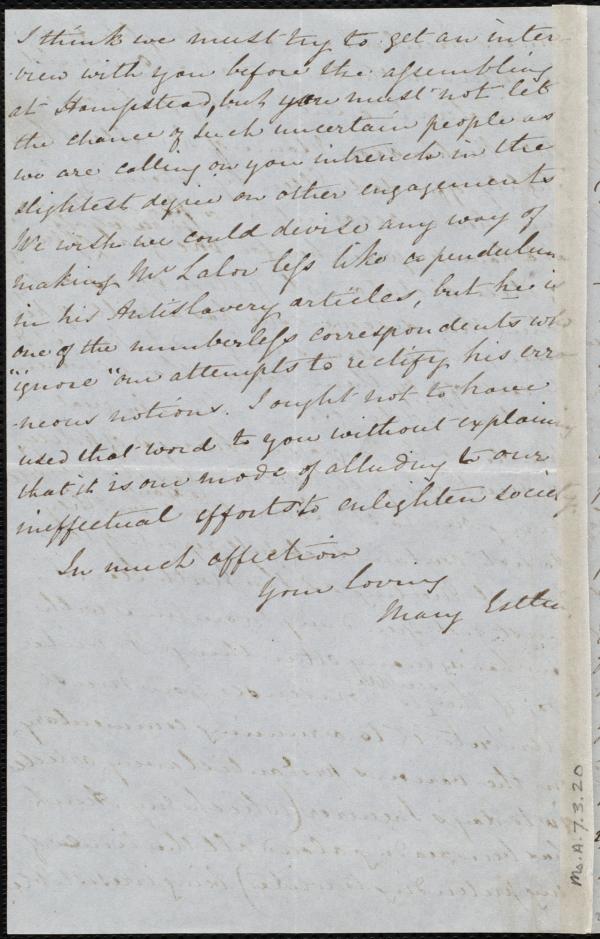 I think we must try to get an inter-
view with you before the assembling
at Hampstead, but you must not let
the chance of such uncertain people as
we are calling on you intrench in the
slightest degree on other engagements
We wish we could devise any way of
making Mr Lalor less like a pendulum
in his Antislavery articles, but he is
one of the numberless correspondents who
"ignore" our attempts to rectify his erro
neous notions. I ought not to have
used that word to you without explaining
that it is our mode of alluding to our
ineffectual efforts to enlighten society
In much affection
Your loving
Mary Estlin
Ms. A. 7. 3. 20